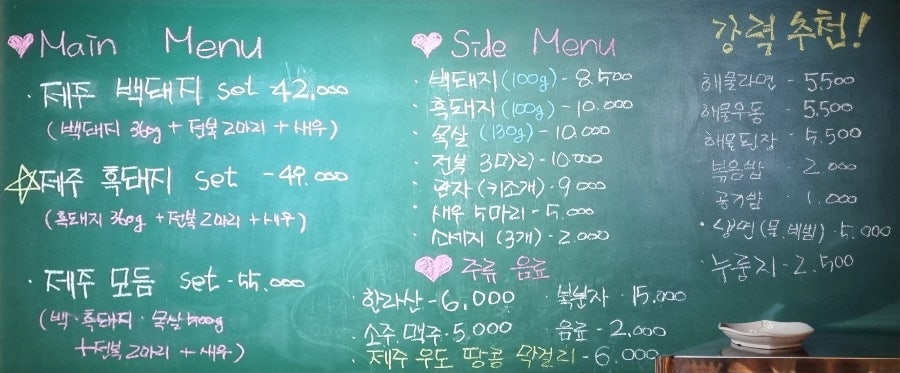 ♥ Main Menu
· 제주 백돼지 set 42,000
(백돼지 360g + 전복 2마리 + 새우)
☆제주 흑돼지 set - 49.000
(흑돼지 360g + 전복 2마리 + 새우)
· 제주 모듬 set - 55.000
(백 · 흑돼지 · 목살 500g
+ 전복 2마리 + 새우)
♥ Side Menu
· 백돼지 (100g) - 8.500
· 흑돼지 (100g) - 10.000
· 목살 (130g) - 10.000
· 전복 3마리 - 10.000
· 관자 (키조개) - 9.000
· 새우 5마리 - 5.000
· 소세지 (3개) - 2.000
♥ 주류 음료
· 한라산 - 6,000
· 복분자 · 15,000
· 소주 맥주 · 5,000
· 음료 - 2,000
· 제주 우도 땅콩 막걸리 - 6.000
강력 추천!
해물라면 - 5.500
해물우동 - 5.500
해물된장 - 5.500
볶음밥 - 2.000
공기밥 - 1.000
· 냉면 (물, 비빔) - 5.000
· 누룽지 - 2.500